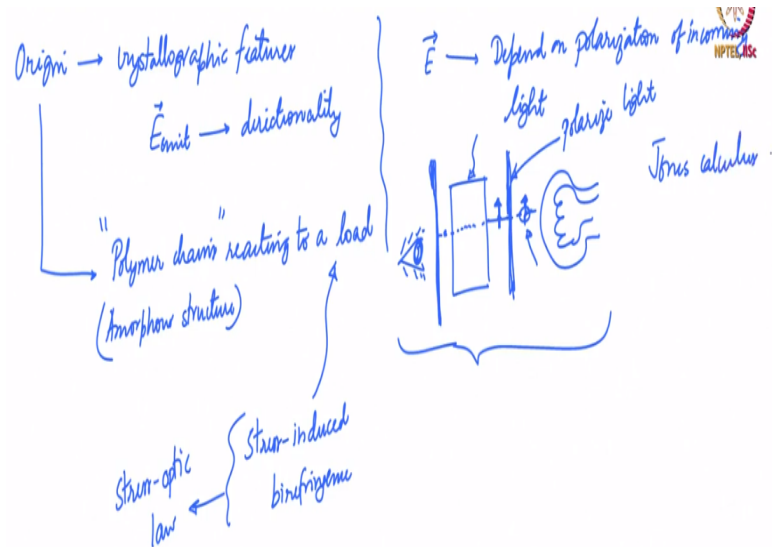 Origin → crystallographic features
E⃗emit → directionality
"Polymer chains" reacting to a load
(Amorphous structure)
Stress-induced
birefringence
Stress-optic
law
E⃗ → Depend on polarization of incoming
light
polarize light
Jones calculus
NPTEL IISc